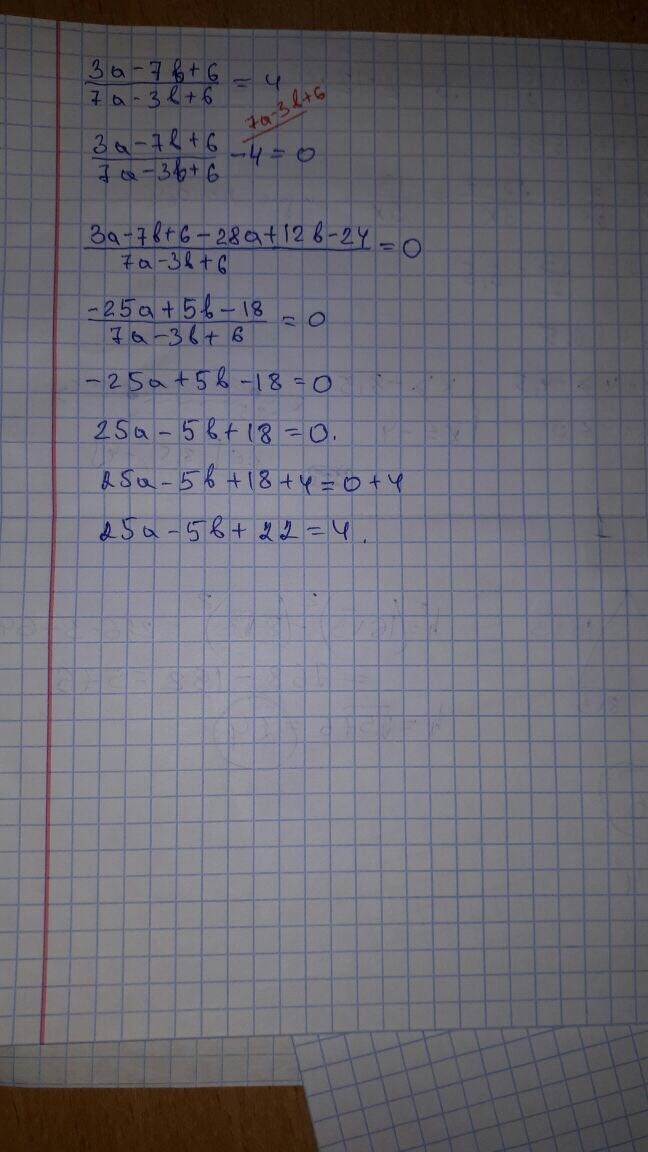 3a-7b+6
7a-3b+6 = 4
7a-3b+6
3a-7b+6
7a-3b+6 -4=0
3a-7b+6-28a+12b-24
7a-3b+6 =0
-25a+5b-18
7a-3b+6 =0
-25a+5b-18=0
25a-5b+18=0.
25a-5b+18+4=0+4
25a-5b+22=4.